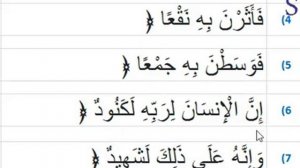 فَأَثَرْنَ بِهِ نَقْعًا ﴿ (4
فَوَسَطْنَ بِهِ جَمْعًا ﴿ (5
إِنَّ الْإِنسَانَ لِرَبِّهِ لَكَنُودٌ ﴿ (6
وَإِنَّهُ عَلَى ذَلِكَ لَشَهِيدٌ ﴿ (7